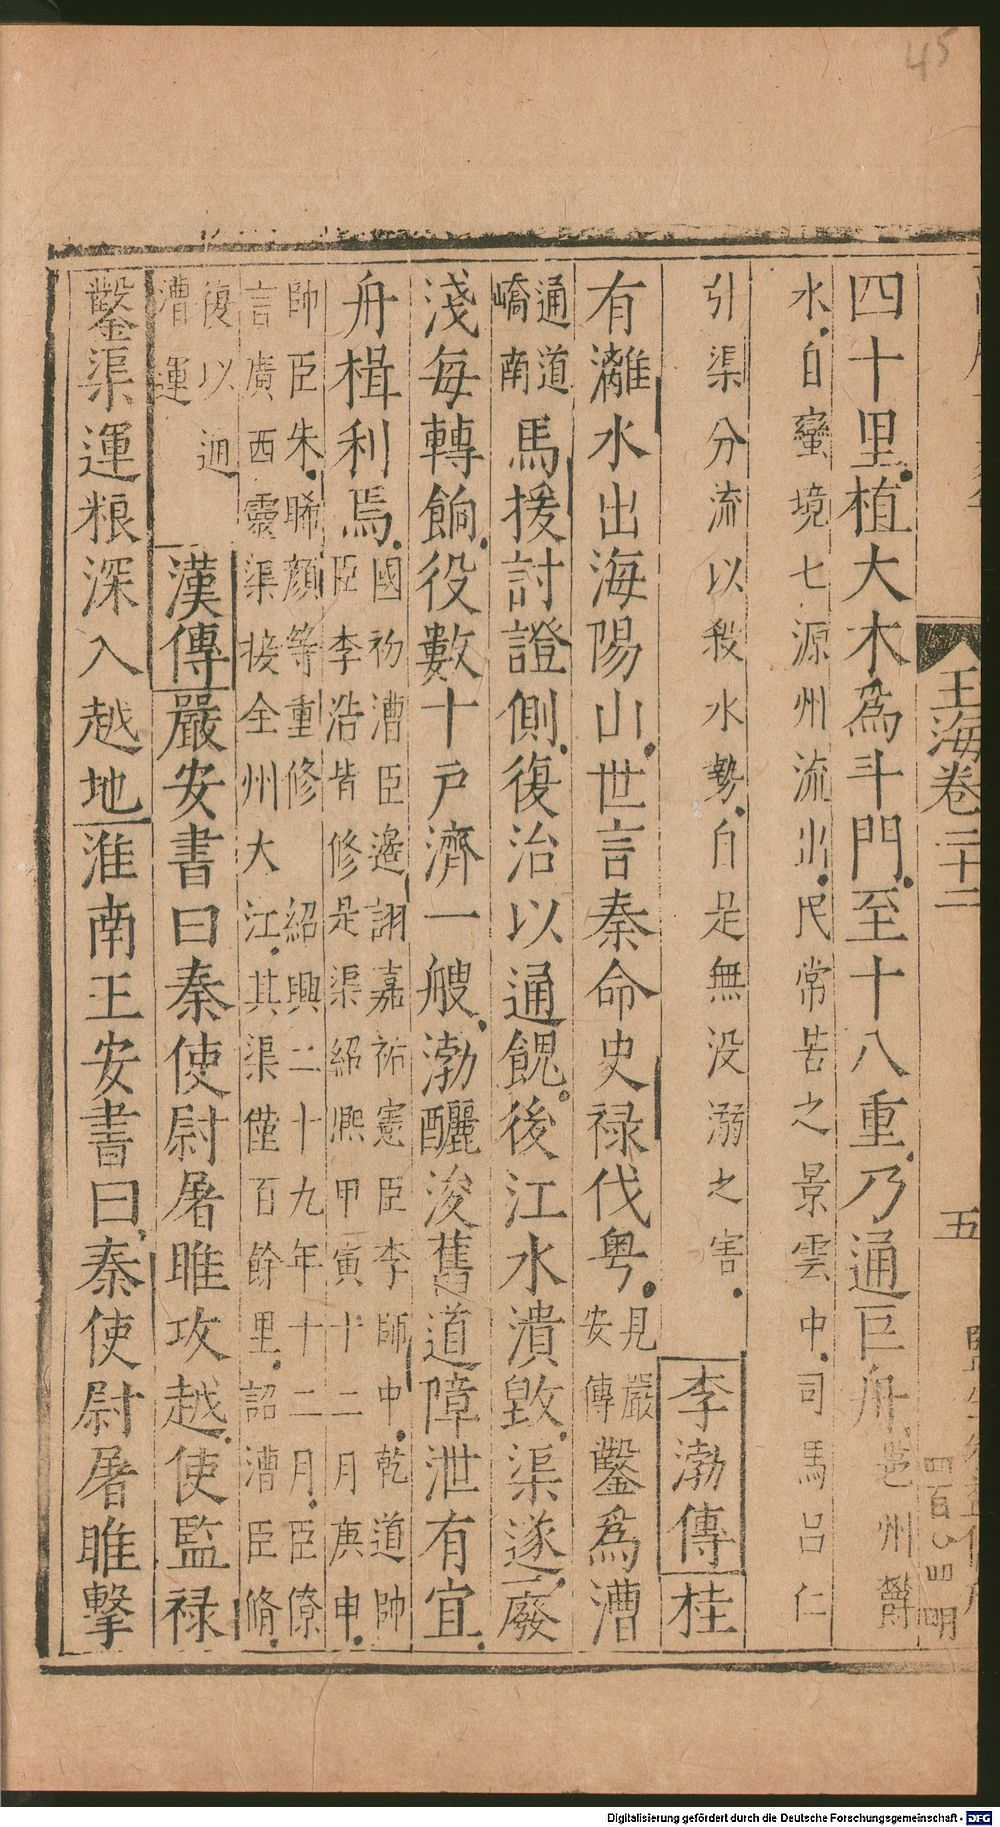 45
玉海卷二十二 五
四十里植大木爲斗門至十八重乃通巨舟邕州欝
水自蠻境七源州流出民常苦之景雲中司馬呂仁
引渠分流以殺水勢自是無没溺之害李渤傳桂
有灕水出海陽山世言秦命史禄伐粤見嚴安傳鑿爲漕
通道嶠南馬援討證側復治以通餽後江水潰毀渠遂廢
淺每轉餉役數十戸濟一艘渤釃浚舊道障泄有宜
舟楫利焉國初漕臣邊詡嘉祐憲臣李師中乾道帥
臣李浩皆修是渠紹熙甲寅十二月庚申
帥臣朱晞顔等重修 紹興二十九年十二月臣僚
言廣西靈渠接全州大江其渠僅百餘里詔漕臣脩
復以通
漕運漢傳嚴安書曰秦使尉屠睢攻越使監禄
鑿渠運粮深入越地淮南王安書曰秦使尉屠睢擊
Digitalisierung gefördert durch die Deutsche Forschungsgemeinschaft - DFG